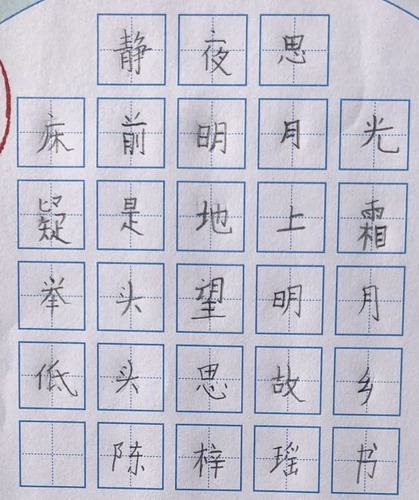 静夜思
床前明月光
疑是地上霜
举头望明月
低头思故乡
陈梓瑶书